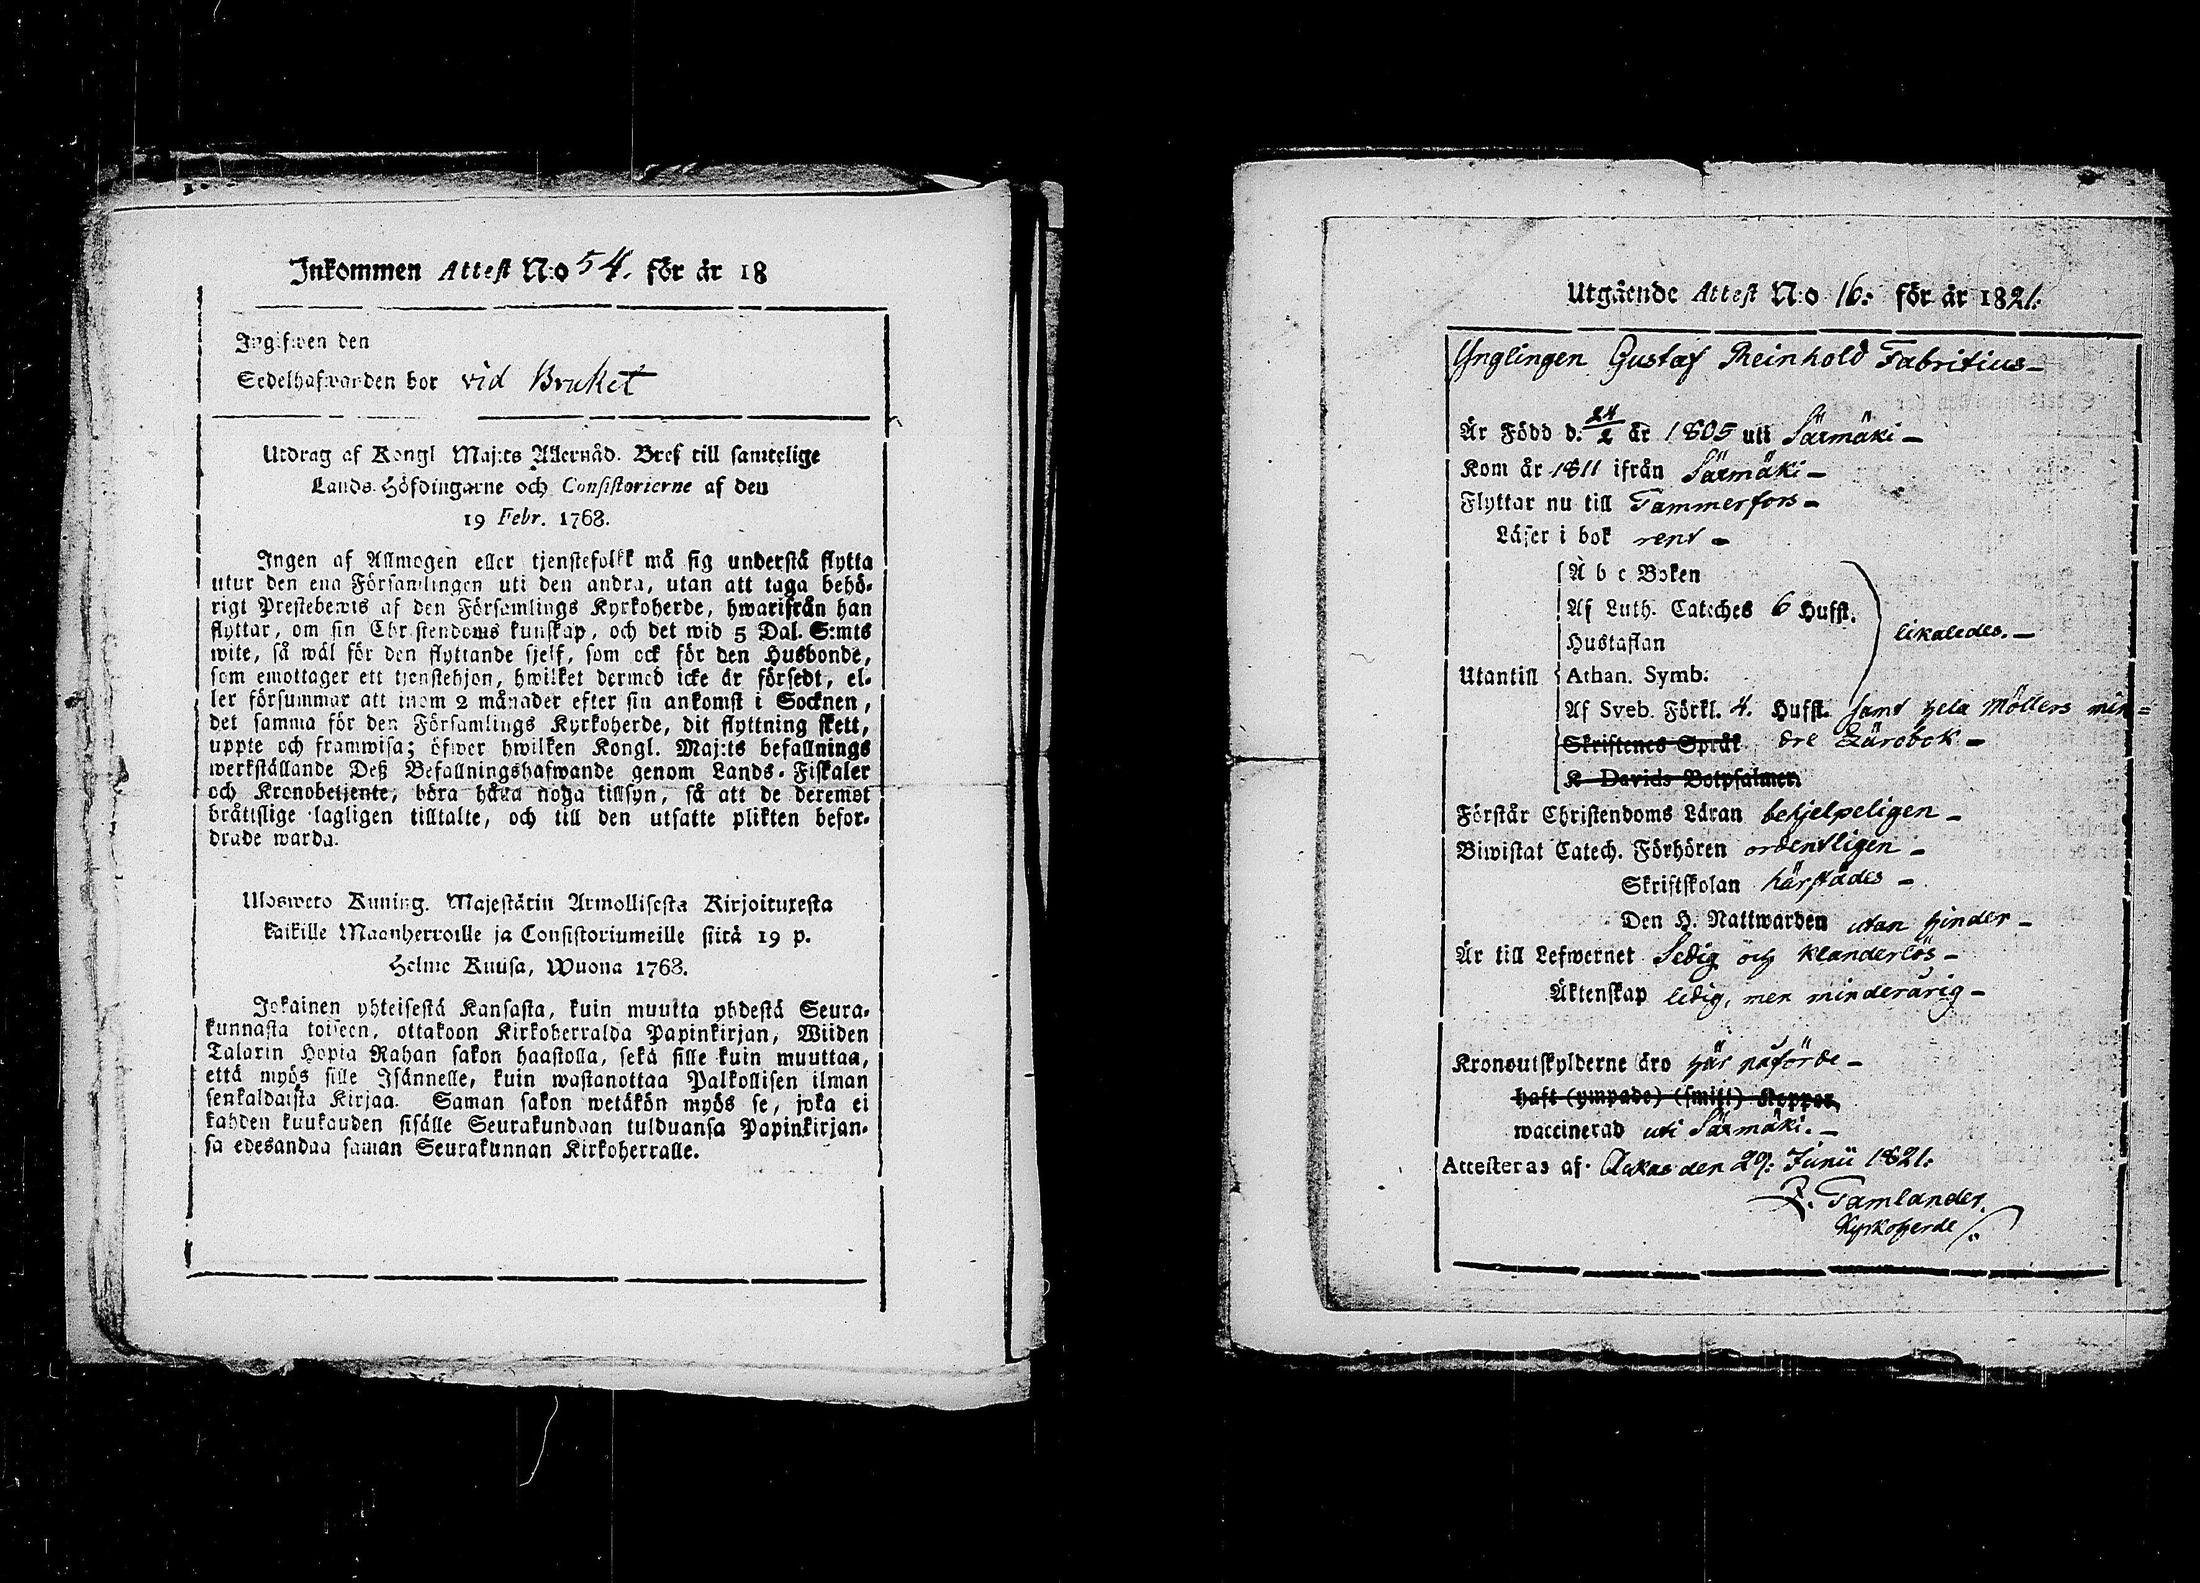 Inkommen Attest N:o 54. för år 18
Ingifwen den
Sedelhafwanden bor vid Bruket
Utdrag af Kongl Maj:ts Allernåd. Bref till samtelige
Lands-Höfdingarne och Consistorierne af den
19 Febr. 1768.
Ingen af Allmogen eller tjenstefolkk må sig understå flytta
utur den ena Församlingen uti den andra, utan att taga behö-
rigt Prestebewis af den Församlings Kyrkoherde, hwarifrån han
flyttar, om sin Christendoms kunskap, och det wid 5 Dal. S:mts
wite, så wäl för den flyttande sjelf, som ock för den Husbonde,
som emottager ett tjenstehjon, hwilket dermed icke är försedt, el-
ler försummar att inom 2 månader efter sin ankomst i Socknen,
det samma för den Församlings Kyrkoherde, dit flyttning skett,
uppte och framwisa; öfwer hwilken Kongl. Maj:ts befallnings
werkställande Deß Befallningshafwande genom Lands-Fiskaler
och Kronobetjente, böra hålla noga tillsyn, så att de deremot
bråttslige lagligen tilltalte, och till den utsatte plikten befor-
drade warda.
Ulosweto Kuning. Majestätin Armollisesta Kirjoituxesta
kaikille Maanherroille ja Consistoriumeille siitä 19 p.
Helme Kuusa, Wuona 1768.
Jokainen yhteisestä Kansasta, kuin muutta yhdestä Seura-
kunnasta toiseen, ottakoon Kirkoherralda Papinkirjan, Wiiden
Talarin Hopia Rahan sakon haastolla, sekä sille kuin muuttaa,
että myös sille Isännelle, kuin wastanottaa Palkollisen ilman
senkaldaista Kirjaa. Saman sakon wetäkön myös se, joka ei
kahden kuukauden sisälle Seurakundaan tulduansa Papinkirjan-
sa edesandaa saman Seurakunnan Kirkoherralle.
Utgående Attest N:o 16. för år 1821.
Ynglingen Gustaf Reinhold Fabritius
Är Född d. 24/2 år 1805 uti Särmäki
Kom år 1811 ifrån Särmäki
Flyttar nu till Tammerfors
Läser i bok rent
A b c Boken
Af Luth. Cateches 6 Hufst.
Hustaflan
likaledes.
Utantill Athan. Symb.
Af Sveb. Förkl. 4. Hufst. samt hela Möllers min=
Skriftenes Språk dre Lärobok
K Davids Botpsalmer.
Förstår Christendoms Läran behjelpeligen
Biwistat Catech. Förhören ordentligen
Skriftskolan härstädes
Den H. Nattwarden utan hinder
Är till Lefwernet Sedig och klanderlös
Äktenskap ledig, men minderårig
Kronoutskylderne äro här påförde
haft (ympade) (smitt) Koppor,
waccinerad uti Särmäki.
Attesteras af Ackas den 29. Junii 1821.
Z. Tamlander.
Kyrkoherde